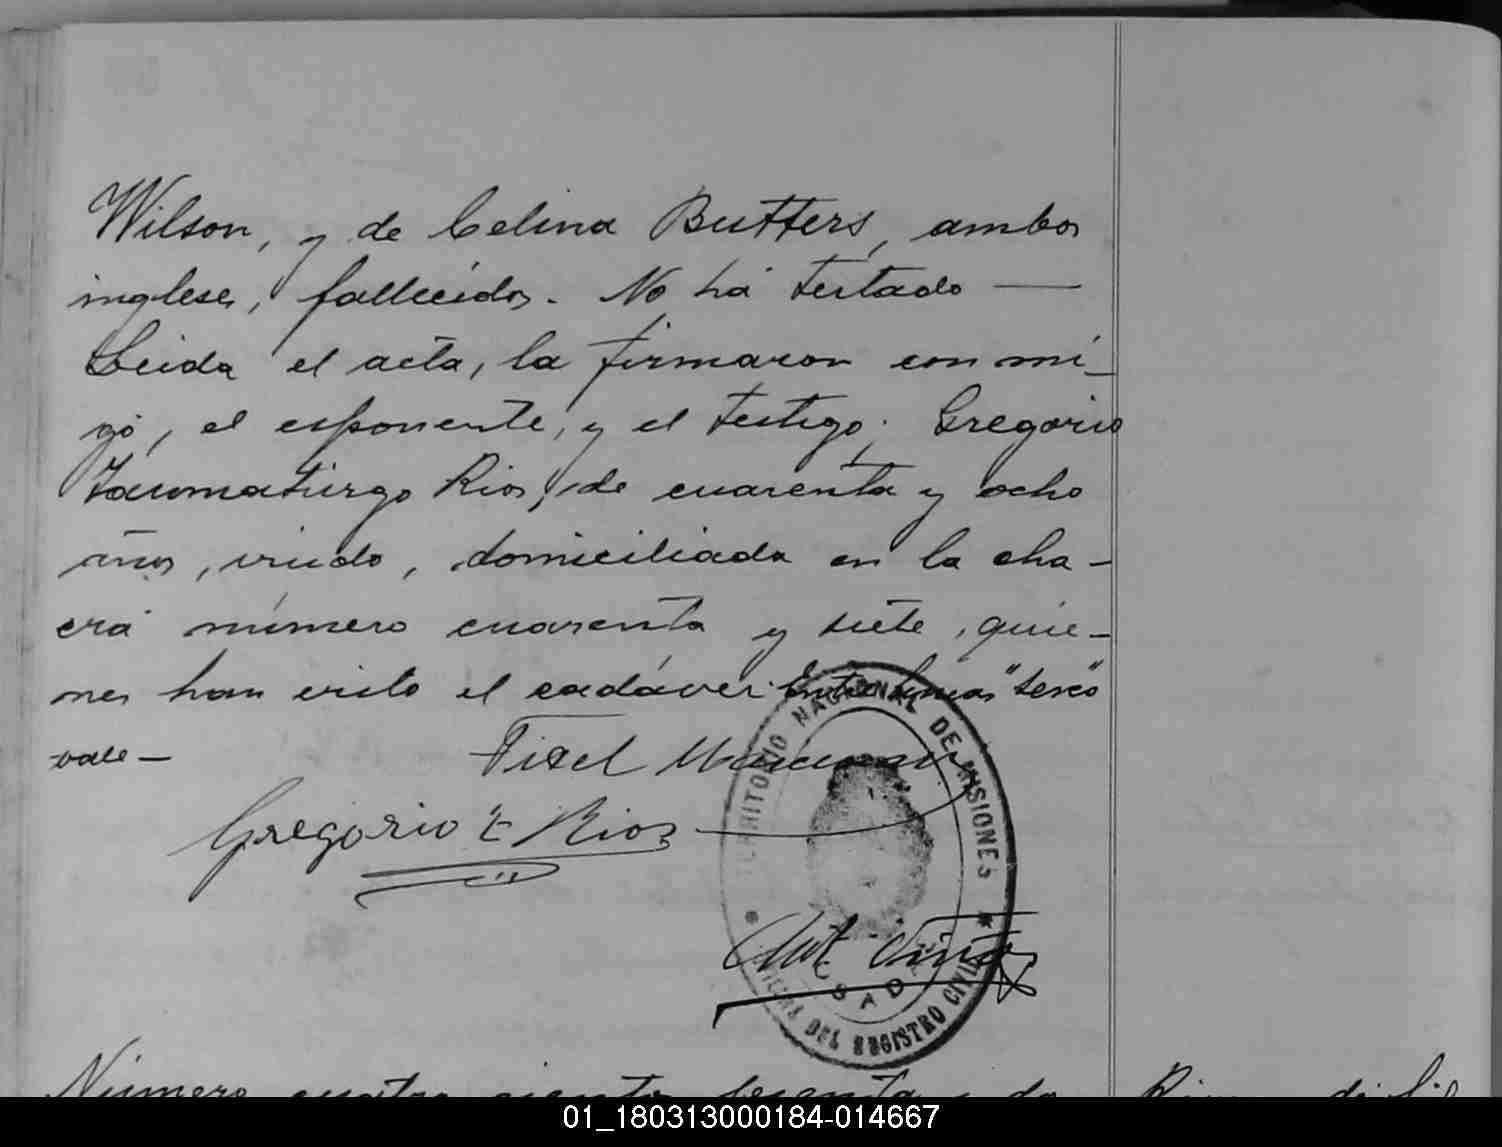 Wilson, y de Celina Butters, ambos
ingleses, fallecidos. No ha testado —
Leida el acta, la firmaron con mi-
go, el esponente, y el testigo; Gregorio
Taumaturgo Rios, de cuarenta y ocho
años, viudo, domiciliado en la cha-
cra número cuarenta y siete, quie-
nes han visto el cadáver. Entre lineas "
vale —
Gregorio T Rios
TERRITORIO NACIONAL DE MISIONES
OFICINA DEL REGISTRO CIVIL
Número cuatro ciento sesenta y
01_180313000184-014667